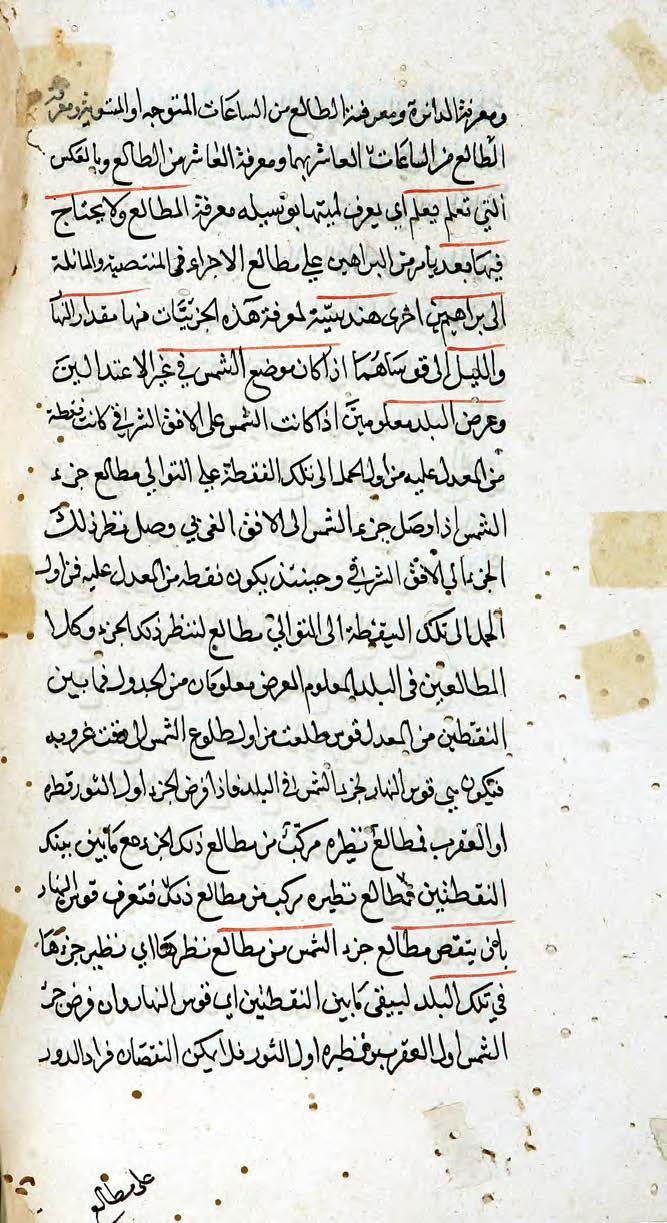 ومعرفة الدائرة ومعرفة الطالع من الساعات المتوجه او المستوية ومعرفة
الطالع من الساعات العاشر بهما ومعرفة العاشر من الطالع وبالعكس
التي تعلم يعلم اي يعرف لميتها بوسيله معرفة المطالع ولا يحتاج
فيها بعد يامر من البراهين علي مطالع الاجراء في المنتصبة والمائلة
الى براهين اخرى هندسيّة لمعرفة هذه الجزئيّات منها مقدار النها
والليل الى قوساهُمَا اذا كان موضع الشمس في غير الاعتدالين
وعرض البلد معلومين اذا كانت الشمس على الافق الشرقي كانت نقطة
من المعدل عليه من اول الحمل الى تلك النقطة علي التوالي مطالع جزء
الشمس اذا وصل جزء الشمس الى الافق الغربي وصل نظر ذلك
الجزء الي الافق الشرقي وحينئذ يكون نقطه من المعدل عليه فمن اول
الحمل الى تلك النقطة الى التوالي مطالع لنظر ذلك الجزء وكلا
المطالعين في البلد المعلوم العرض معلومان من الجدول فما بين
النقطتين من المعدل قوس طلعت من اول طلوع الشمس الى وقت غروبه
فتكون هي قوس النهار لجزء الشمس في البلد فاذا فرض الجزء اول الثور قطره
او العقرب فطالع نظيره مركبٌ من مطالع ذلك الجزء مع مابين بينك
النقطتين فمطالع نظيره مركب من مطالع ذلك فتعرف قوس النهار
بان ينقص مطالع جزء الشمس من مطالع نظرها اي نظير جزءها
في تلك البلد ليبقى مابين النقطتين اي قوس النهار وان فرض جزء
الشمس اول العقرب ونظيره اول الثور فلا يمكن النقصان فزاد الدور
على مطالع